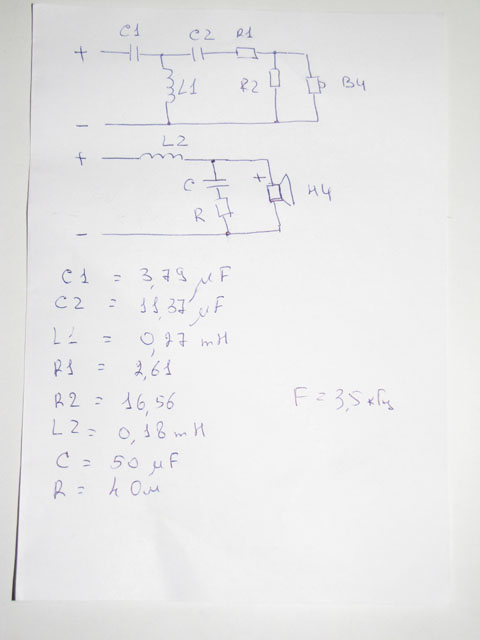 C1 C2 R1
+
L1 R2 ВЧ
-
L2
+
C + НЧ
R
-
C1 = 3,79 μF
C2 = 11,37 μF
L1 = 0,27 mH
R1 = 2,61
R2 = 16,56 F = 3,5 кГц
L2 = 0,18 mH
C = 50 μF
R = 4 Ом